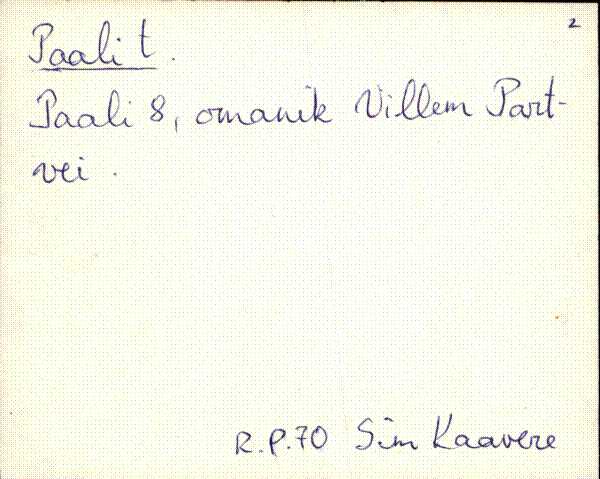 2
Paali t.
Paali 8, omanik Villem Part-
vei.
R.P.70 Sim Kaavere